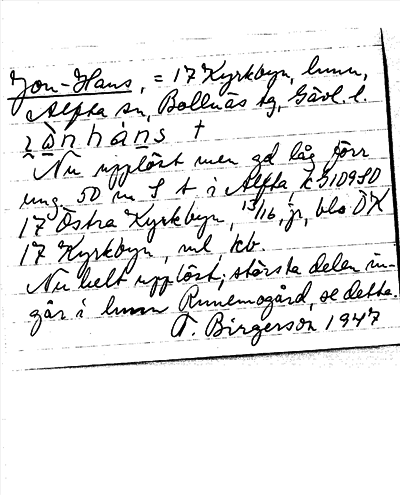 Jon-Hans, = 17 Kyrkbyn, hmn,
Alfta sn, Bollnäs tg, Gävl. l.
jo̱nhàns †
Nu upplöst men gd låg förr
ung. 50 m S t i Alfta
17 Östra Kyrkbyn, 13/16, jr, bl. ÖK
17 Kyrkbyn, ml, kb.
Nu helt upplöst; största delen in-
går i hmn Runemogård, se detta.
T. Birgerson 1947